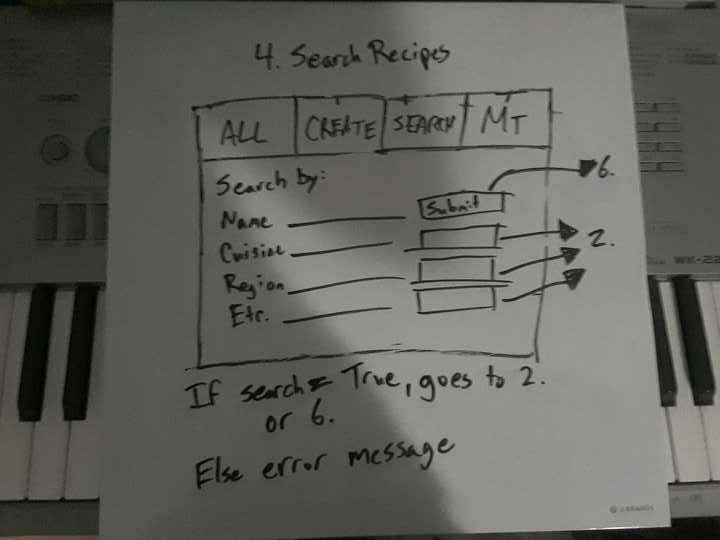 4. Search Recipes
ALL CREATE SEARCH MT
Search by:
6.
Name Submit
Cuisine 2.
Region
Etc.
If search = True, goes to 2.
or 6.
Else error message
CASIO
WK-22